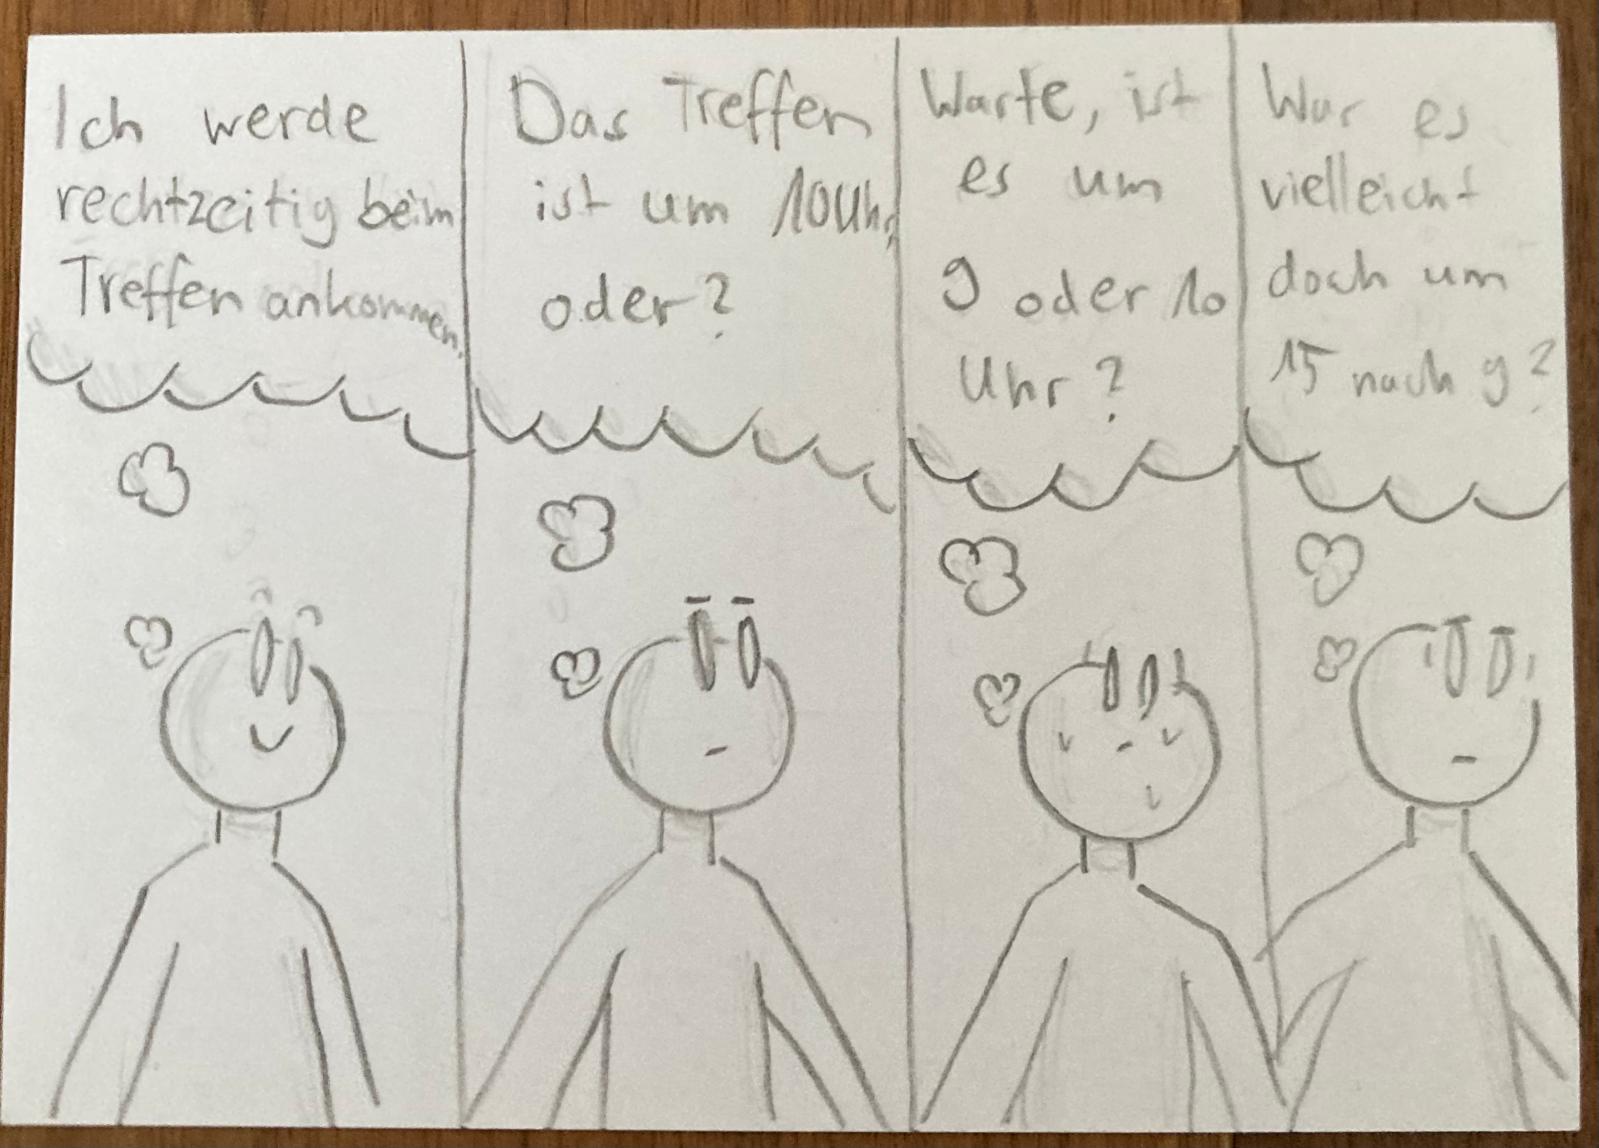 Ich werde
rechtzeitig beim
Treffen ankommen.
Das Treffen
ist um 10 Uhr,
oder?
Warte, ist
es um
9 oder 10
Uhr?
War es
vielleicht
doch um
15 nach 9?